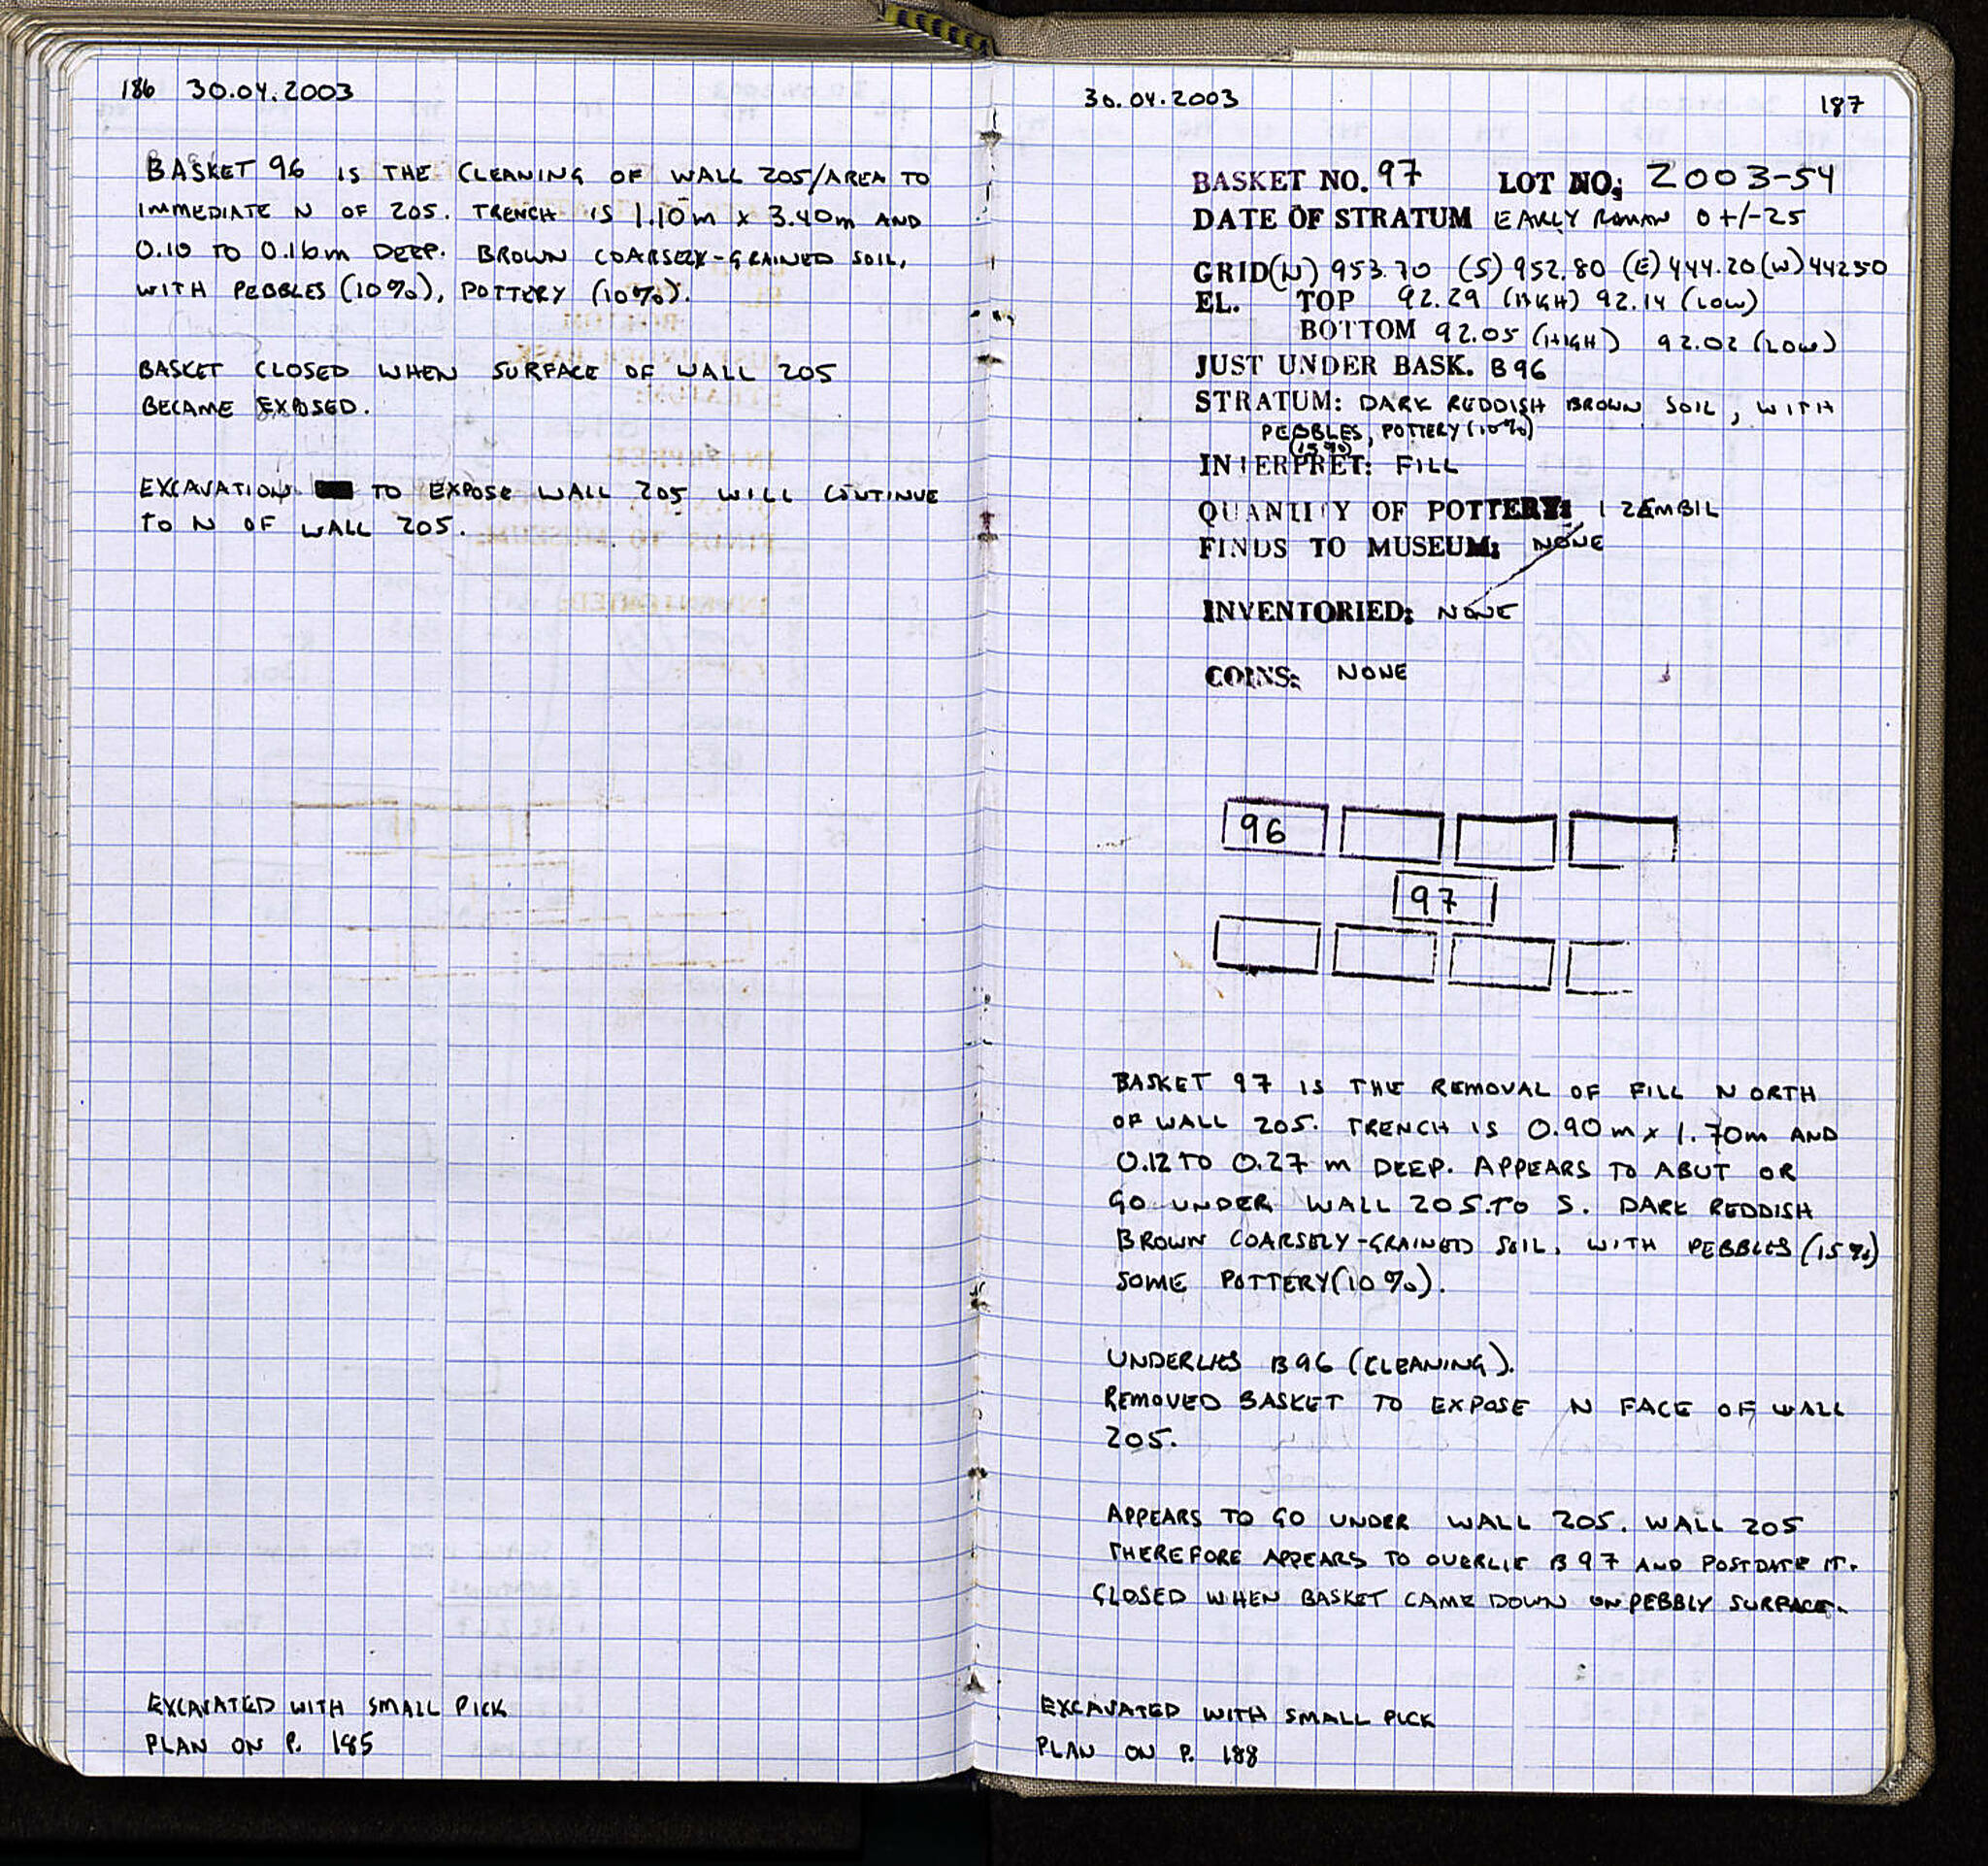 186 30.04.2003
BASKET 96 IS THE CLEANING OF WALL 205/AREA TO
IMMEDIATE N OF 205. TRENCH IS 1.10m x 3.40m AND
0.10 TO 0.16m DEEP. BROWN COARSELY-GRAINED SOIL,
WITH PEBBLES (10%), POTTERY (10%).
BASKET CLOSED WHEN SURFACE OF WALL 205
BECAME EXPOSED.
EXCAVATION TO EXPOSE WALL 205 WILL CONTINUE
TO N OF WALL 205.
EXCAVATED WITH SMALL PICK
PLAN ON P. 185
30.04.2003 187
BASKET NO. 97 LOT NO; 2003-54
DATE OF STRATUM EARLY ROMAN 0 +/-25
GRID(N) 953.70 (S) 952.80 (E) 444.20 (W) 442.50
EL. TOP 92.29 (HIGH) 92.14 (LOW)
BOTTOM 92.05 (HIGH) 92.02 (LOW)
JUST UNDER BASK. B96
STRATUM: DARK REDDISH BROWN SOIL, WITH
PEBBLES, POTTERY (10%)
(15%)
INTERPRET: FILL
QUANTITY OF POTTERY: 1 ZEMBIL
FINDS TO MUSEUM: NONE
INVENTORIED: NONE
COINS: NONE
96
97
BASKET 97 IS THE REMOVAL OF FILL NORTH
OF WALL 205. TRENCH IS 0.90m x 1.70m AND
0.12 TO 0.27 m DEEP. APPEARS TO ABUT OR
GO UNDER WALL 205 TO S. DARK REDDISH
BROWN COARSELY-GRAINED SOIL, WITH PEBBLES (15%)
SOME POTTERY (10%).
UNDERLIES B96 (CLEANING).
REMOVED BASKET TO EXPOSE N FACE OF WALL
205.
APPEARS TO GO UNDER WALL 205. WALL 205
THEREFORE APPEARS TO OVERLIE B97 AND POSTDATE IT.
CLOSED WHEN BASKET CAME DOWN ON PEBBLY SURFACE.
EXCAVATED WITH SMALL PICK
PLAN ON P. 188